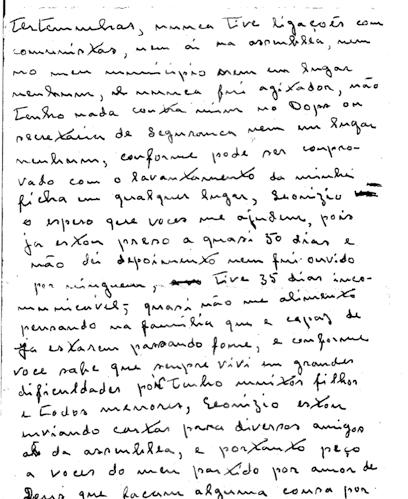 testemunhas, nunca tive ligações com
comunistas, nem ai na assemblea, nem
no meu municipio nem em lugar
nenhum, e nunca fui agitador, não
tenho nada contra mim no Dops ou
secretaria de segurança nem em lugar
nenhum, conforme pode ser compro-
vado com o levantamento da minha
ficha em qualquer lugar, Leonizio
e espero que voces me ajudem, pois
ja estou preso a quasi 50 dias e
não dei depoimento nem fui ouvido
por ninguem, tive 35 dias inco-
municavel, quasi não me alimento
pensando na familia que e capaz de
ja estarem passando fome, e conforme
voce sabe que sempre vivi em grandes
dificuldades por tenho muitos filhos
e todos menores, Leonizio estou
enviando cartas para diversos amigos
da assemblea, e portanto peço
a voces do meu partido por amor de
Deus que façam alguma cousa por